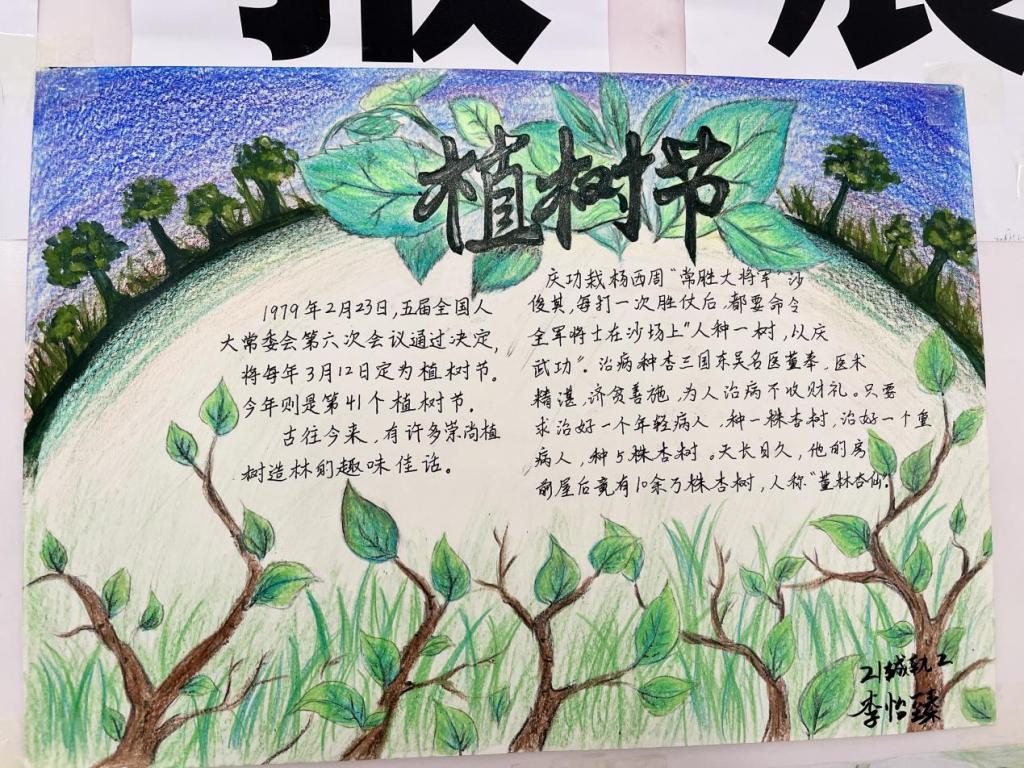 报展
植树节
1979年2月23日,五届全国人
大常委会第六次会议通过决定,
将每年3月12日定为植树节。
今年则是第41个植树节。
古往今来,有许多崇尚植
树造林的趣味佳话。
庆功栽杨西周“常胜大将军”沙
俊其,每打一次胜仗后,都要命令
全军将士在沙场上“人种一树,从庆
武功”。治病种杏三国东吴名医董奉,医术
精湛,济贫善施,为人治病不收财礼。只要
求治好一个年轻病人,种一株杏树,治好一个重
病人,种5株杏树。天长日久,他的房
前屋后竟有10余万株杏树,人称“董林杏仙”。
21城轨2
李怡臻